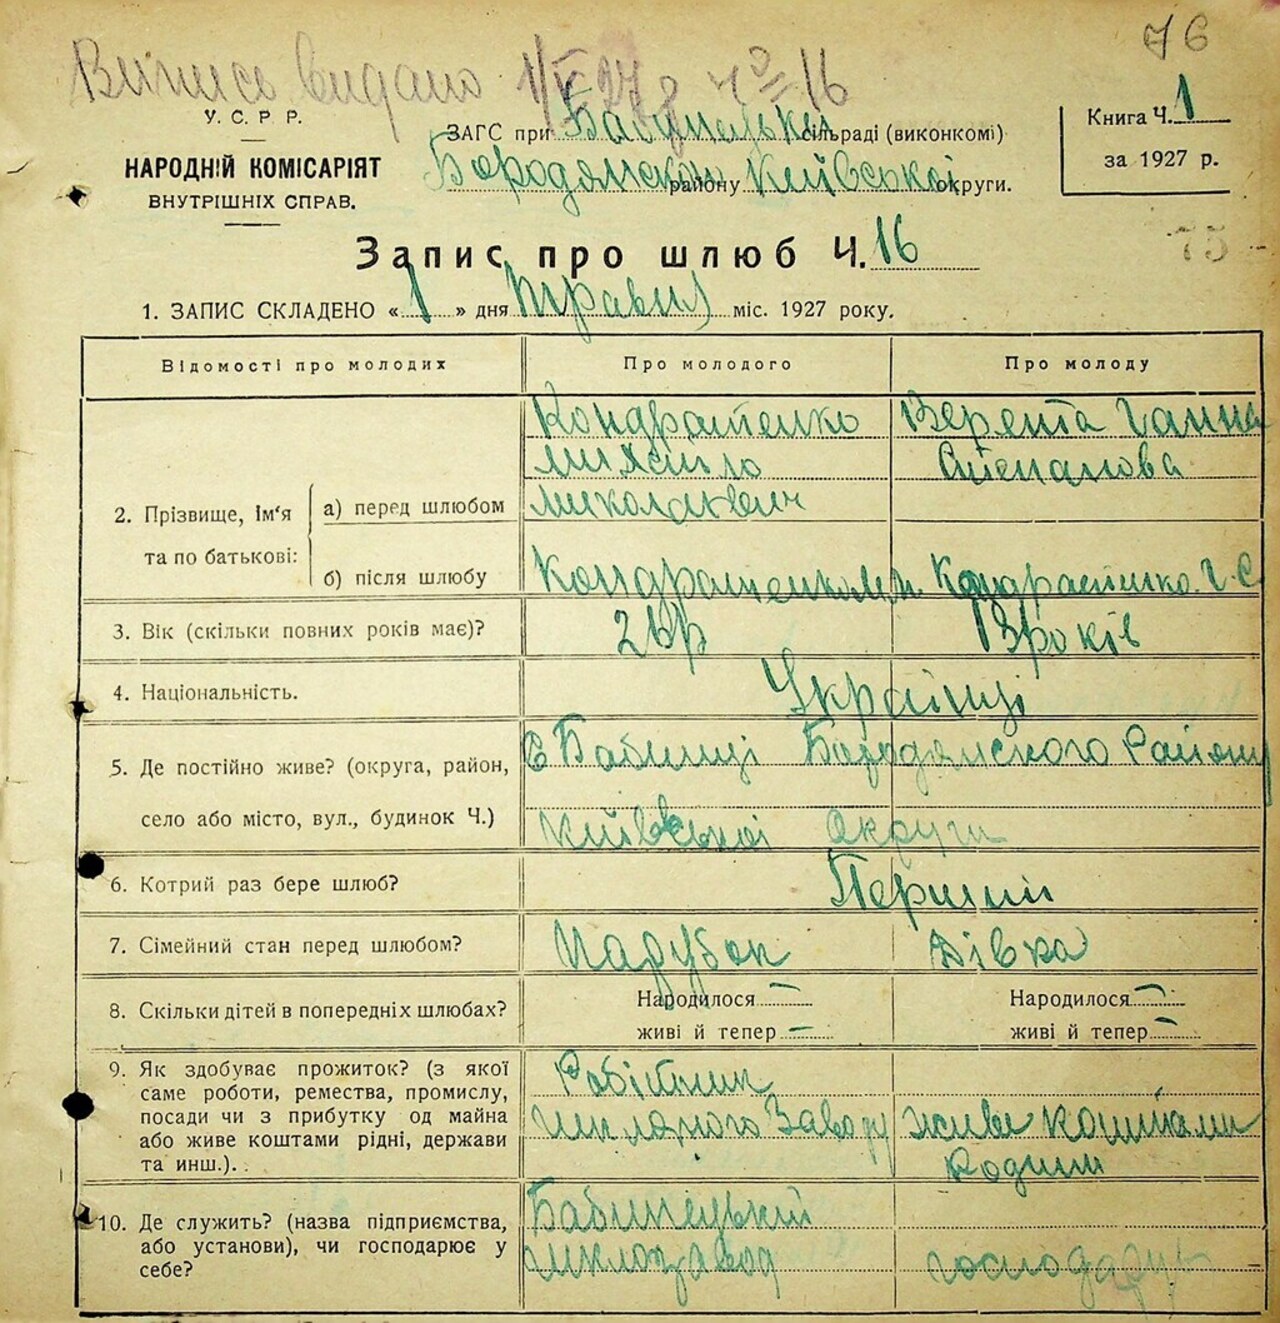 76
Випись видано 1/V 27 р ч 16
У. С. Р. Р.
НАРОДНІЙ КОМІСАРІЯТ
ВНУТРІШНІХ СПРАВ.
ЗАГС при Бабинецькій сільраді (виконкомі)
Бородянськ району Київської округи.
Книга Ч. 1
за 1927 р.
75
Запис про шлюб Ч. 16
1. ЗАПИС СКЛАДЕНО « 1 » дня травня міс. 1927 року.
Відомості про молодих Про молодого Про молоду
2. Прізвище, Ім‘я та по батькові:
а) перед шлюбом
Кондратенко
Михайло
Миколаєвич
Верета Ганна
Степанова
б) після шлюбу
Кондратенко М. М. Кондратенко Г. С
3. Вік (скільки повних років має)? р років
4. Національність. Українці
5. Де постійно живе? (округа, район,
село або місто, вул., будинок Ч.)
С Бабинці Бородянского Району
Київської Округи
6. Котрий раз бере шлюб? Перший
7. Сімейний стан перед шлюбом? Парубок Дівка
8. Скільки дітей в попередніх шлюбах?
Народилося — Народилося —
живі й тепер — живі й тепер —
9. Як здобуває прожиток? (з якої
саме роботи, ремества, промислу,
посади чи з прибутку од майна
або живе коштами рідні, держави
та инш.).
Робітник
шкляного Заводу
живе коштами
родини
10. Де служить? (назва підприємства,
або установи), чи господарює у
себе?
Бабинецький
шклозавод
господарує